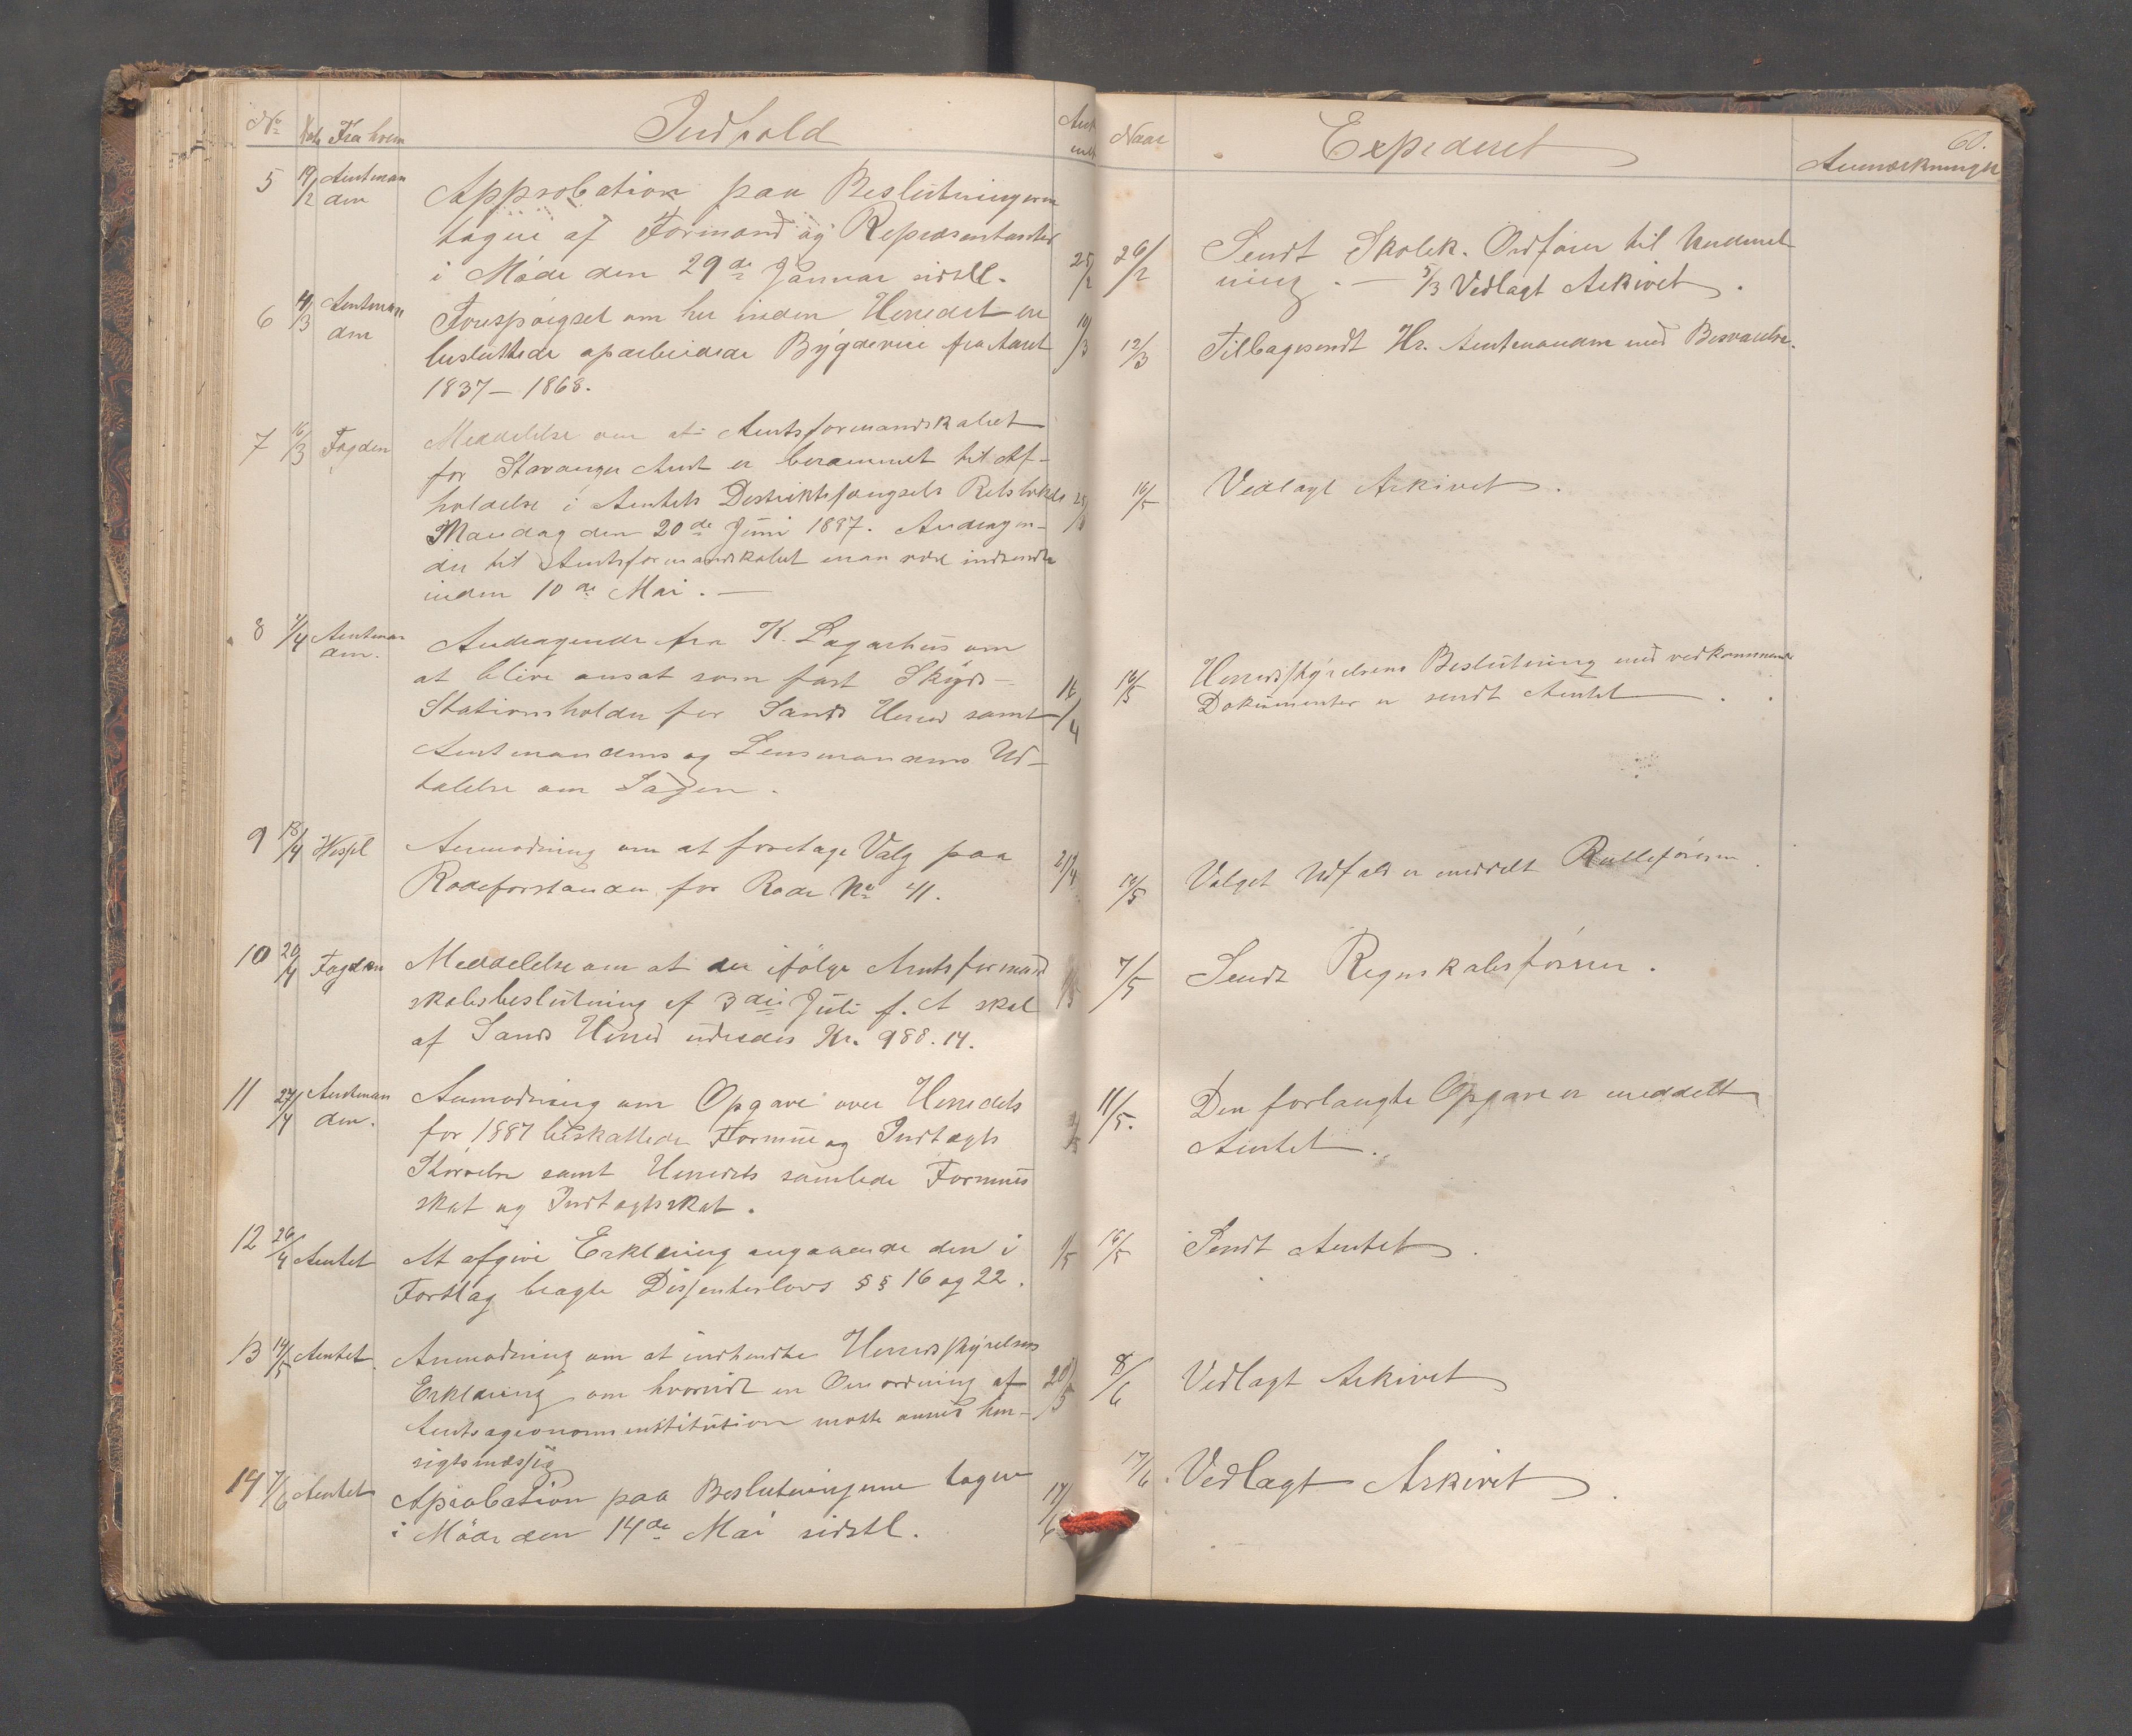 No Dato Fra hvem Indhold Ank
omst
5 19/2 Amtman
den
Approbation paa Beslutningerne
tagne af Formænd og Repræsentanter
i Møde den 29de Januar sidstl. 25/2
6 4/3 Amtman
den
Forespørgsel om her inden Herredet er
besluttede oparbeidede Bygdeveie fra Aaret 10/3
1837 – 1868.
7 16/3 Fogden
Meddelelse om at Amtsformandskabet
for Stavanger Amt er berammet til Af-
holdelse i Amtets Destriktsfængsels Retslokale
Mandag den 20de Juni 1887. Andragen-
der til Amtsformandskabet maa være indsendte
inden 10de Mai. —
8 Amtman
den.
Andragende fra K. Lagarhus om
at blive ansat som fast Skyds-
Stationsholder for Sands Herred samt 16/4
Amtmandens og Lensmandens Ud-
talelse om Sagen.
9 18/4
Anmodning om at foretage Valg paa
Rodeforstander for Rode No 41. 21/4
10 20/4 Fogden
Meddelelse om at der ifølge Amtsformand
skabsbeslutning af 3die Juli f. A skal
af Sands Herred udredes Kr. 988.14.
11 27/4 Amtman
den.
Anmodning om Opgave over Herredets
for 1887 beskattede Formue og Indtægts
Størrelse samt Herredets samlede Formues
skat og Indtægtsskat.
12 26/4 Amtet
At afgive Erklæring angaaende den i 1/5
Forslag bragte Dissenterlovs §§ 16 og 22.
13 14/5 Amtet
Anmodning om at indhendte Herredsstyrelsens
Erklæring om hvorvidt en Omordning af 20/5
Amtsagronominstitution maatte ansees hen-
sigtsmæssig
14 7/6 Amtet
Aprobation paa Beslutningerne tagne
i Møde den 14de Mai sidstl. 17/6
60.
Naar Expederet Anmærkninger
26/2 Sendt Skolek. Ordfører til Underret
ning. — 5/3 Vedlagt Arkivet.
12/3 Tilbagesendt Hr. Amtmanden med Besvarelse.
16/5 Vedlagt Arkivet.
16/5 Herredsstyrelsens Beslutning med vedkommende
Dokumenter er sendt Amtet.
16/5 Valget Udfald er meddelt Rulleføreren.
7/5 Sendt Regnskabsføreren.
11/5. Den forlangte Opgave er meddelt
Amtet.
16/5 Sendt Amtet.
8/6 Vedlagt Arkivet
17/6 Vedlagt Arkivet.